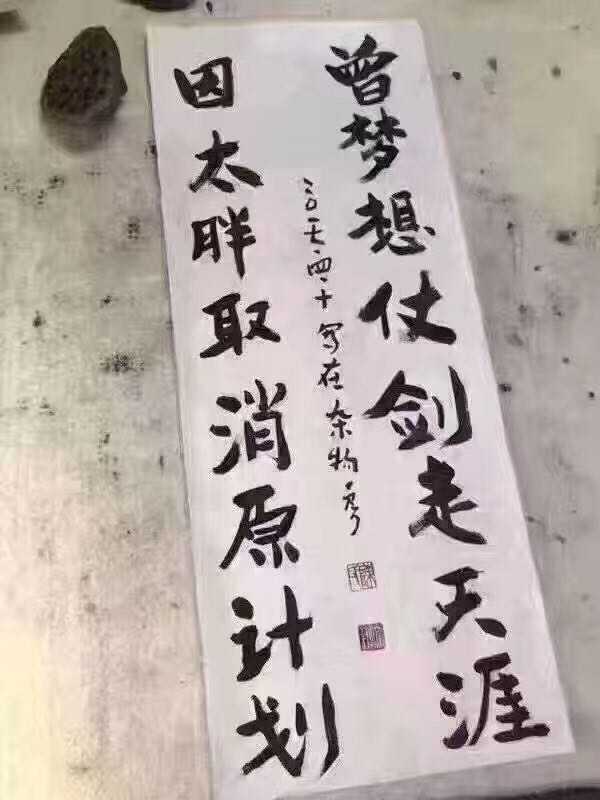 曾梦想仗剑走天涯
因太胖取消原计划
二〇一七·四·十写在杂物